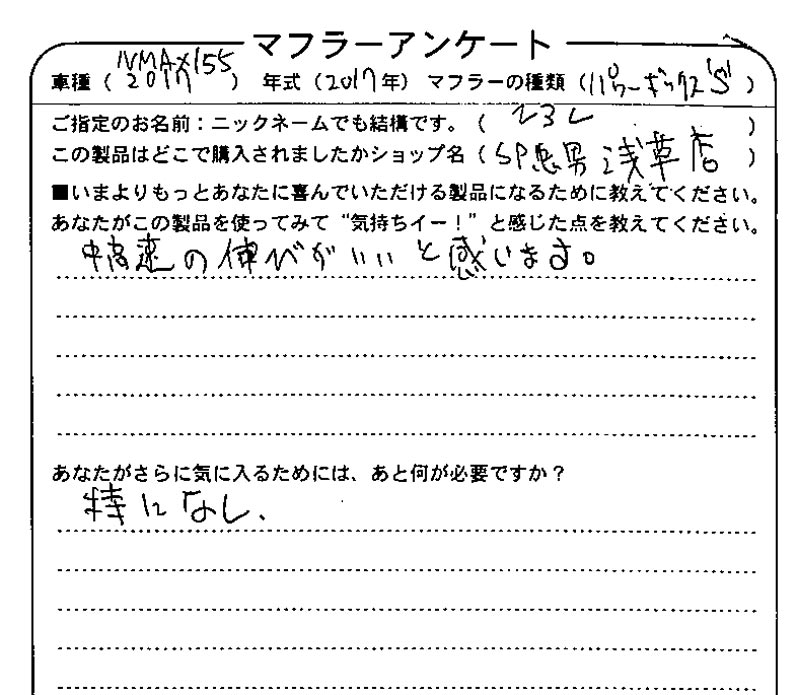 マフラーアンケート
車種（NMAX155 2017）　年式（2017年）マフラーの種類（パワーボックス"S"）
ご指定のお名前：ニックネームでも結構です。（
この製品はどこで購入されましたかショップ名（SP忠男 浅草店）
■いまよりもっとあなたに喜んでいただける製品になるために教えてください。
あなたがこの製品を使ってみて“気持ちイー！”と感じた点を教えてください。
中高速の伸びがいいと感います。
あなたがさらに気に入るためには、あと何が必要ですか？
特になし、